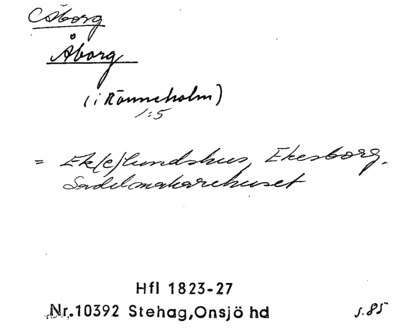 Åborg
Åborg
(i Rönneholm)
1:5
= Ek(e)lundshus, Ekesborg,
Sadelmakarehuset
Hfl 1823-27
Nr.10392 Stehag,Onsjö hd s.85